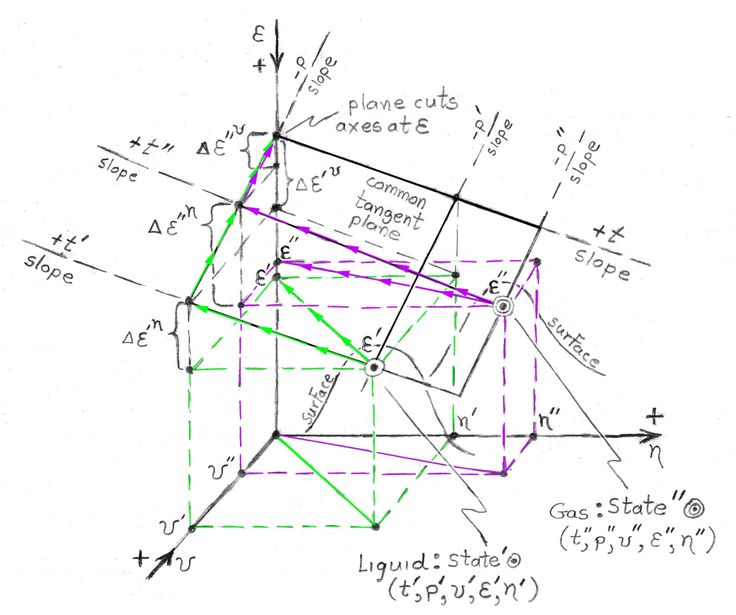 ε
+
-p
slope
plane cuts
axes at ε
-p′
slope
-p″
slope
+t″
slope
Δε″ᵛ
Δε′ᵛ
common
tangent
plane
+t
slope
Δε″ⁿ
+t′
slope
ε″
ε′
ε″
Δε′ⁿ
ε′
surface
surface
η′
η″
+
η
υ″
υ′
+
υ
Gas: State″⊚
(t″, p″, υ″, ε″, η″)
Liquid: State′⊙
(t′, p′, υ′, ε′, η′)